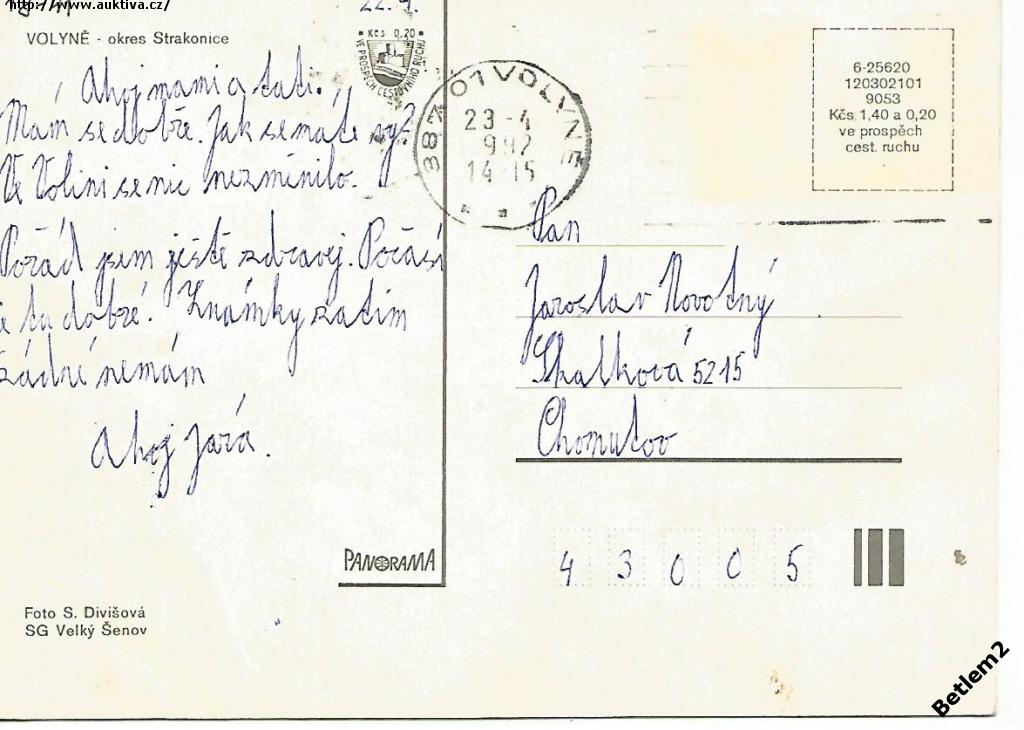 http://www.auktiva.cz/
22.4.
VOLYNĚ - okres Strakonice
Kčs 0,20
VE PROSPĚCH CESTOVNÍHO RUCHU
Ahoj mami a tati.
Mám se dobře. Jak se máte vy?
Ve Volini se nic nezměnilo.
Pořád jsem ještě zdravej. Počasí
je tu dobré. Známky zatím
žádné nemám
Ahoj Jara.
387 01 VOLYNĚ
23 -4
992
14-15
6-25620
120302101
9053
Kčs 1,40 a 0,20
ve prospěch
cest. ruchu
Pan
Jaroslav Novotný
Skalková 5215
Chomutov
43005
PANORAMA
Foto S. Divišová
SG Velký Šenov
Betlem2